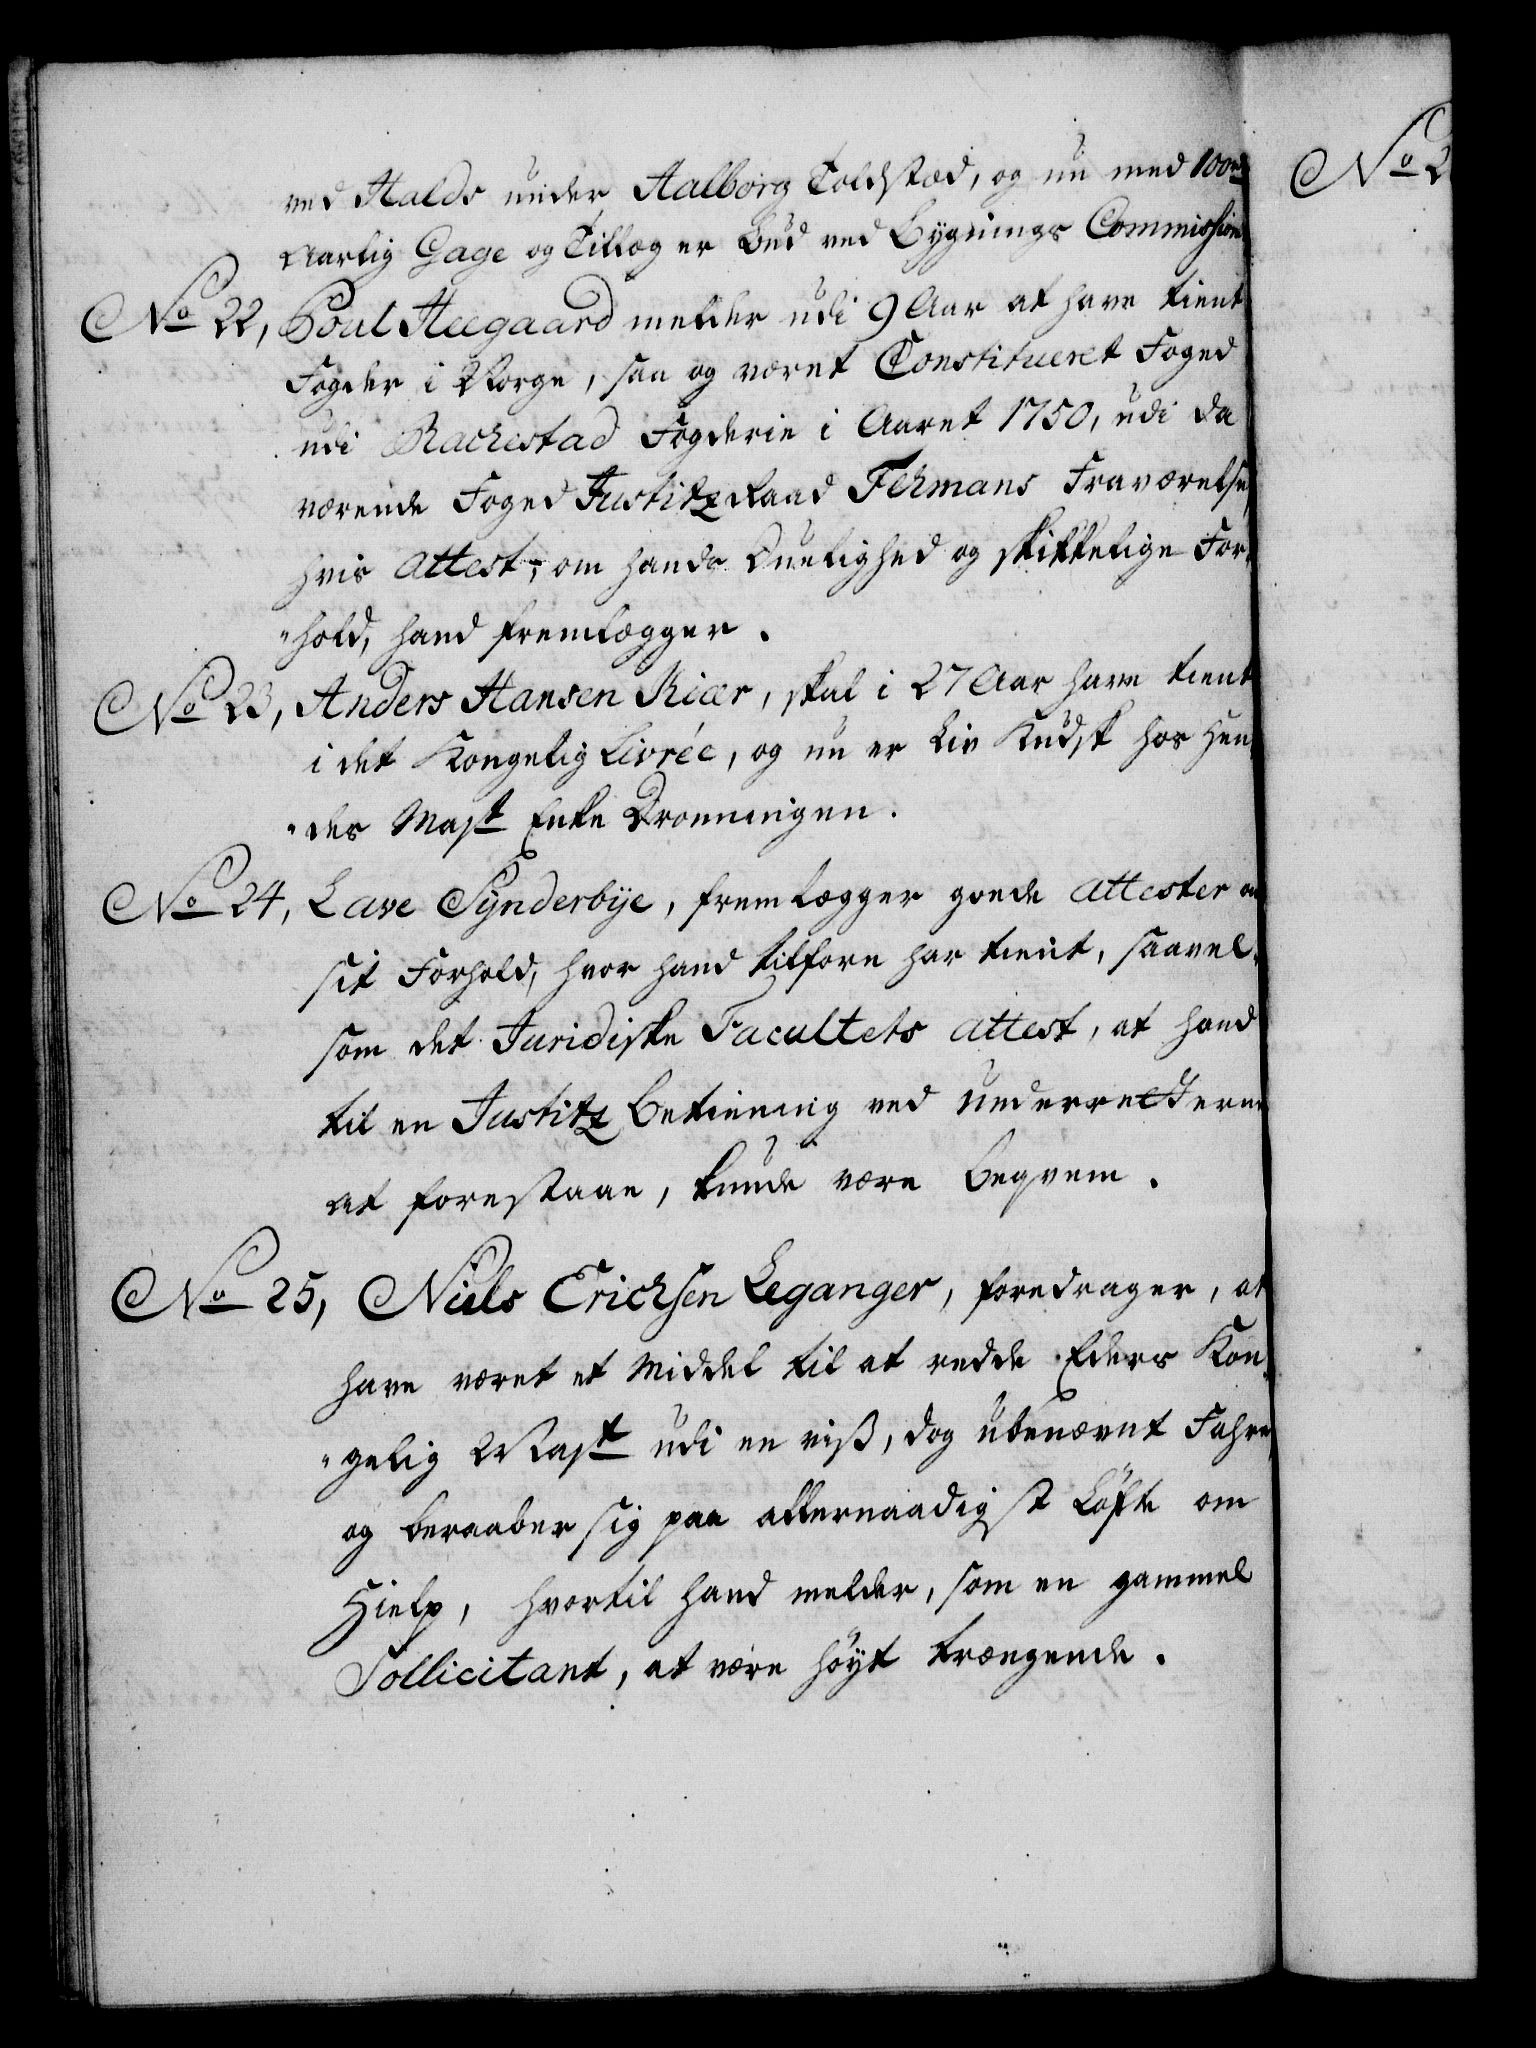 ved Halds under Aalborg Toldstæd, og nu med 100rd
Aarlig Gage og Tillæg er Bud ved Bygnings Commission
No 22, Poul Heegaard melder udi 9 Aar at have tient
Fogder i Norge, saa og været Constitueret Foged
udi Rackestad Fogderie i Aaret 1750, udi da
værende Foged Justitz Raad Fehmans Fraværelse,
hvis Attest, om hands Duelighed og skikkelige For-
"hold, hand fremlægger.
No 23, Anders Hansen Kiær, skal i 27 Aar have tient
i det Kongelig Livrée, og nu er Liv Kudsk hos Hen-
"des Mayst Enke Dronningen.
No 24, Lave Synderbÿe, fremlægger goede Attester om
sit Forhold, hvor hand tilforn har tient, saavel-
som det Juridiske Facultets Attest, at hand
til en Justitz Betiening ved Underretterne
at forestaae, kunde være beqvem.
No 25, Niels Erichsen Leganger, foredrager, at
have været et Middel til at redde Eders Kon-
"gelig Mayst udi en viß, dog unævnt Fahre,
og beraaber sig paa allernaadigst Löfte om
Hielp, hvortil hand melder, som en gammel
Sollicitant, at være höyt trængende.
No 2